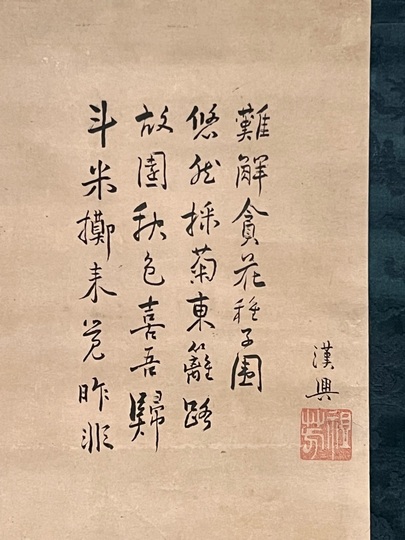 斗米擲来覚昨非
故園秋色喜吾歸
悠然採菊東籬路
難解貪花稚子圍
漢興